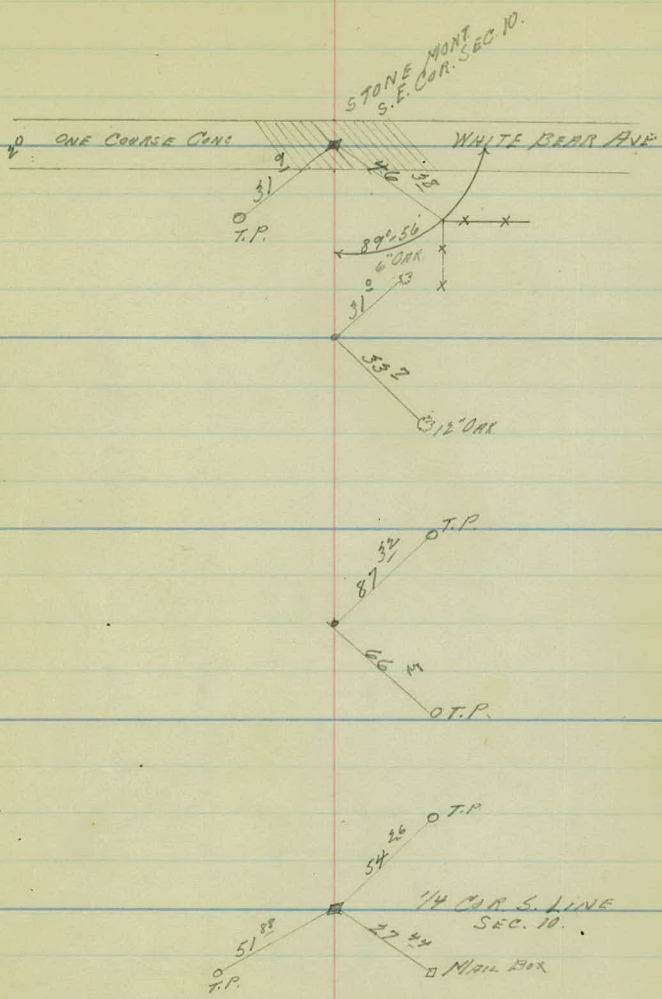 STONE MONT.
S.E. COR. SEC. 10.
20 ONE COURSE CONC WHITE BEAR AVE
31 9
46 38
T.P.
89°-56'
6" OAK
31 0
33 7
12" OAK
T.P.
87 32
66 5
T.P.
T.P.
54 26
1/4 COR. S. LINE
SEC. 10.
51 88
27 44
MAIL BOX
T.P.